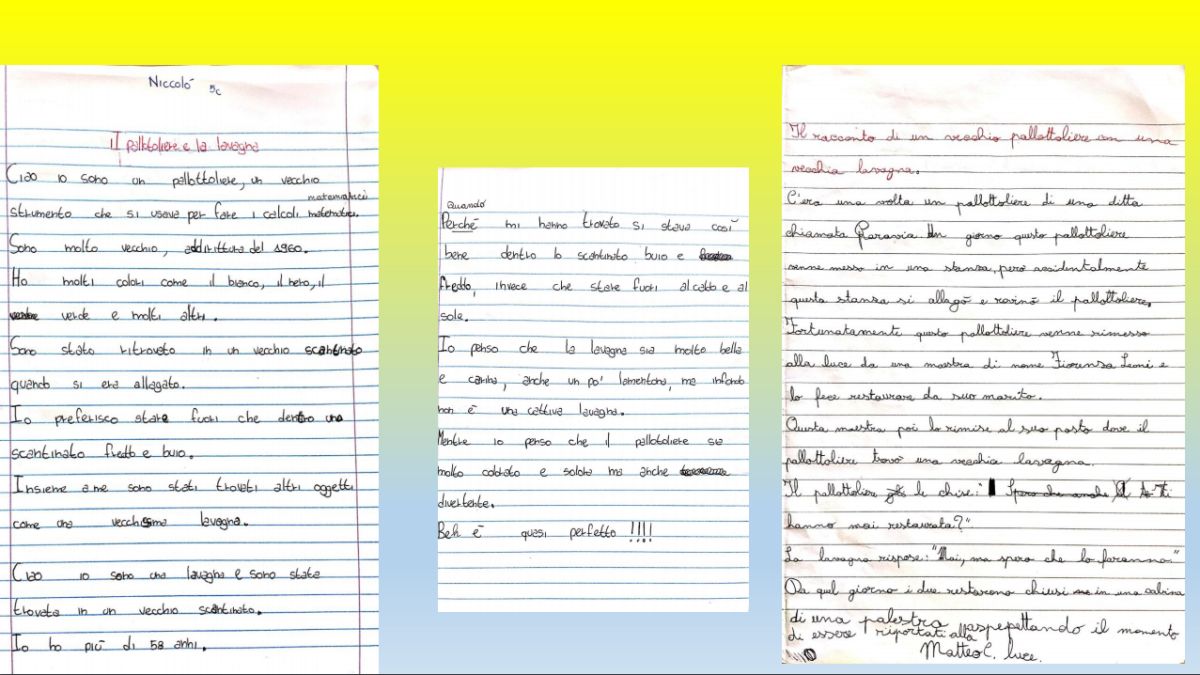 Niccolò 5c
Il pallottoliere e la lavagna
Ciao io sono un pallottoliere, un vecchio
matematici
strumento che si usava per fare i calcoli matematici.
Sono molto vecchio, addirittura del 1960.
Ho molti colori come il bianco, il nero, il
verde e molti altri.
Sono stato ritrovato in un vecchio scantinato
quando si era allagato.
Io preferisco stare fuori che dentro uno
scantinato freddo e buio.
Insieme a me sono stati trovati altri oggetti
come una vecchissima lavagna.
Ciao io sono una lavagna e sono stata
trovata in un vecchio scantinato.
Io ho più di 58 anni.
Quando
Perché mi hanno trovato si stava così
bene dentro lo scantinato buio e
freddo, invece che stare fuori al caldo e al
sole.
Io penso che la lavagna sia molto bella
e carina, anche un po' lamentona, ma infondo
non è una cattiva lavagna.
Mentre io penso che il pallotoliere sia
molto colorato e solare ma anche
divertente.
Beh è quasi perfetto !!!!
Il racconto di un vecchio pallottoliere con una
vecchia lavagna.
C'era una volta un pallottoliere di una ditta
chiamata Paravia. Un giorno questo pallottoliere
venne messo in una stanza, però accidentalmente
questa stanza si allagò e rovinò il pallottoliere.
Fortunatamente questo pallottoliere venne rimesso
alla luce da una maestra di nome Fiorenza Leoni e
lo fece restaurare da suo marito.
Questa maestra poi lo rimise al suo posto dove il
pallottoliere trovò una vecchia lavagna.
Il pallottoliere le chise: "
hanno mai restaurata?"
La lavagna rispose: "Mai, ma spero che lo faranno."
Da quel giorno i due restarono chiusi in una cabina
di una palestra aspepettando il momento
di essere riportati alla luce.
Matteo C.